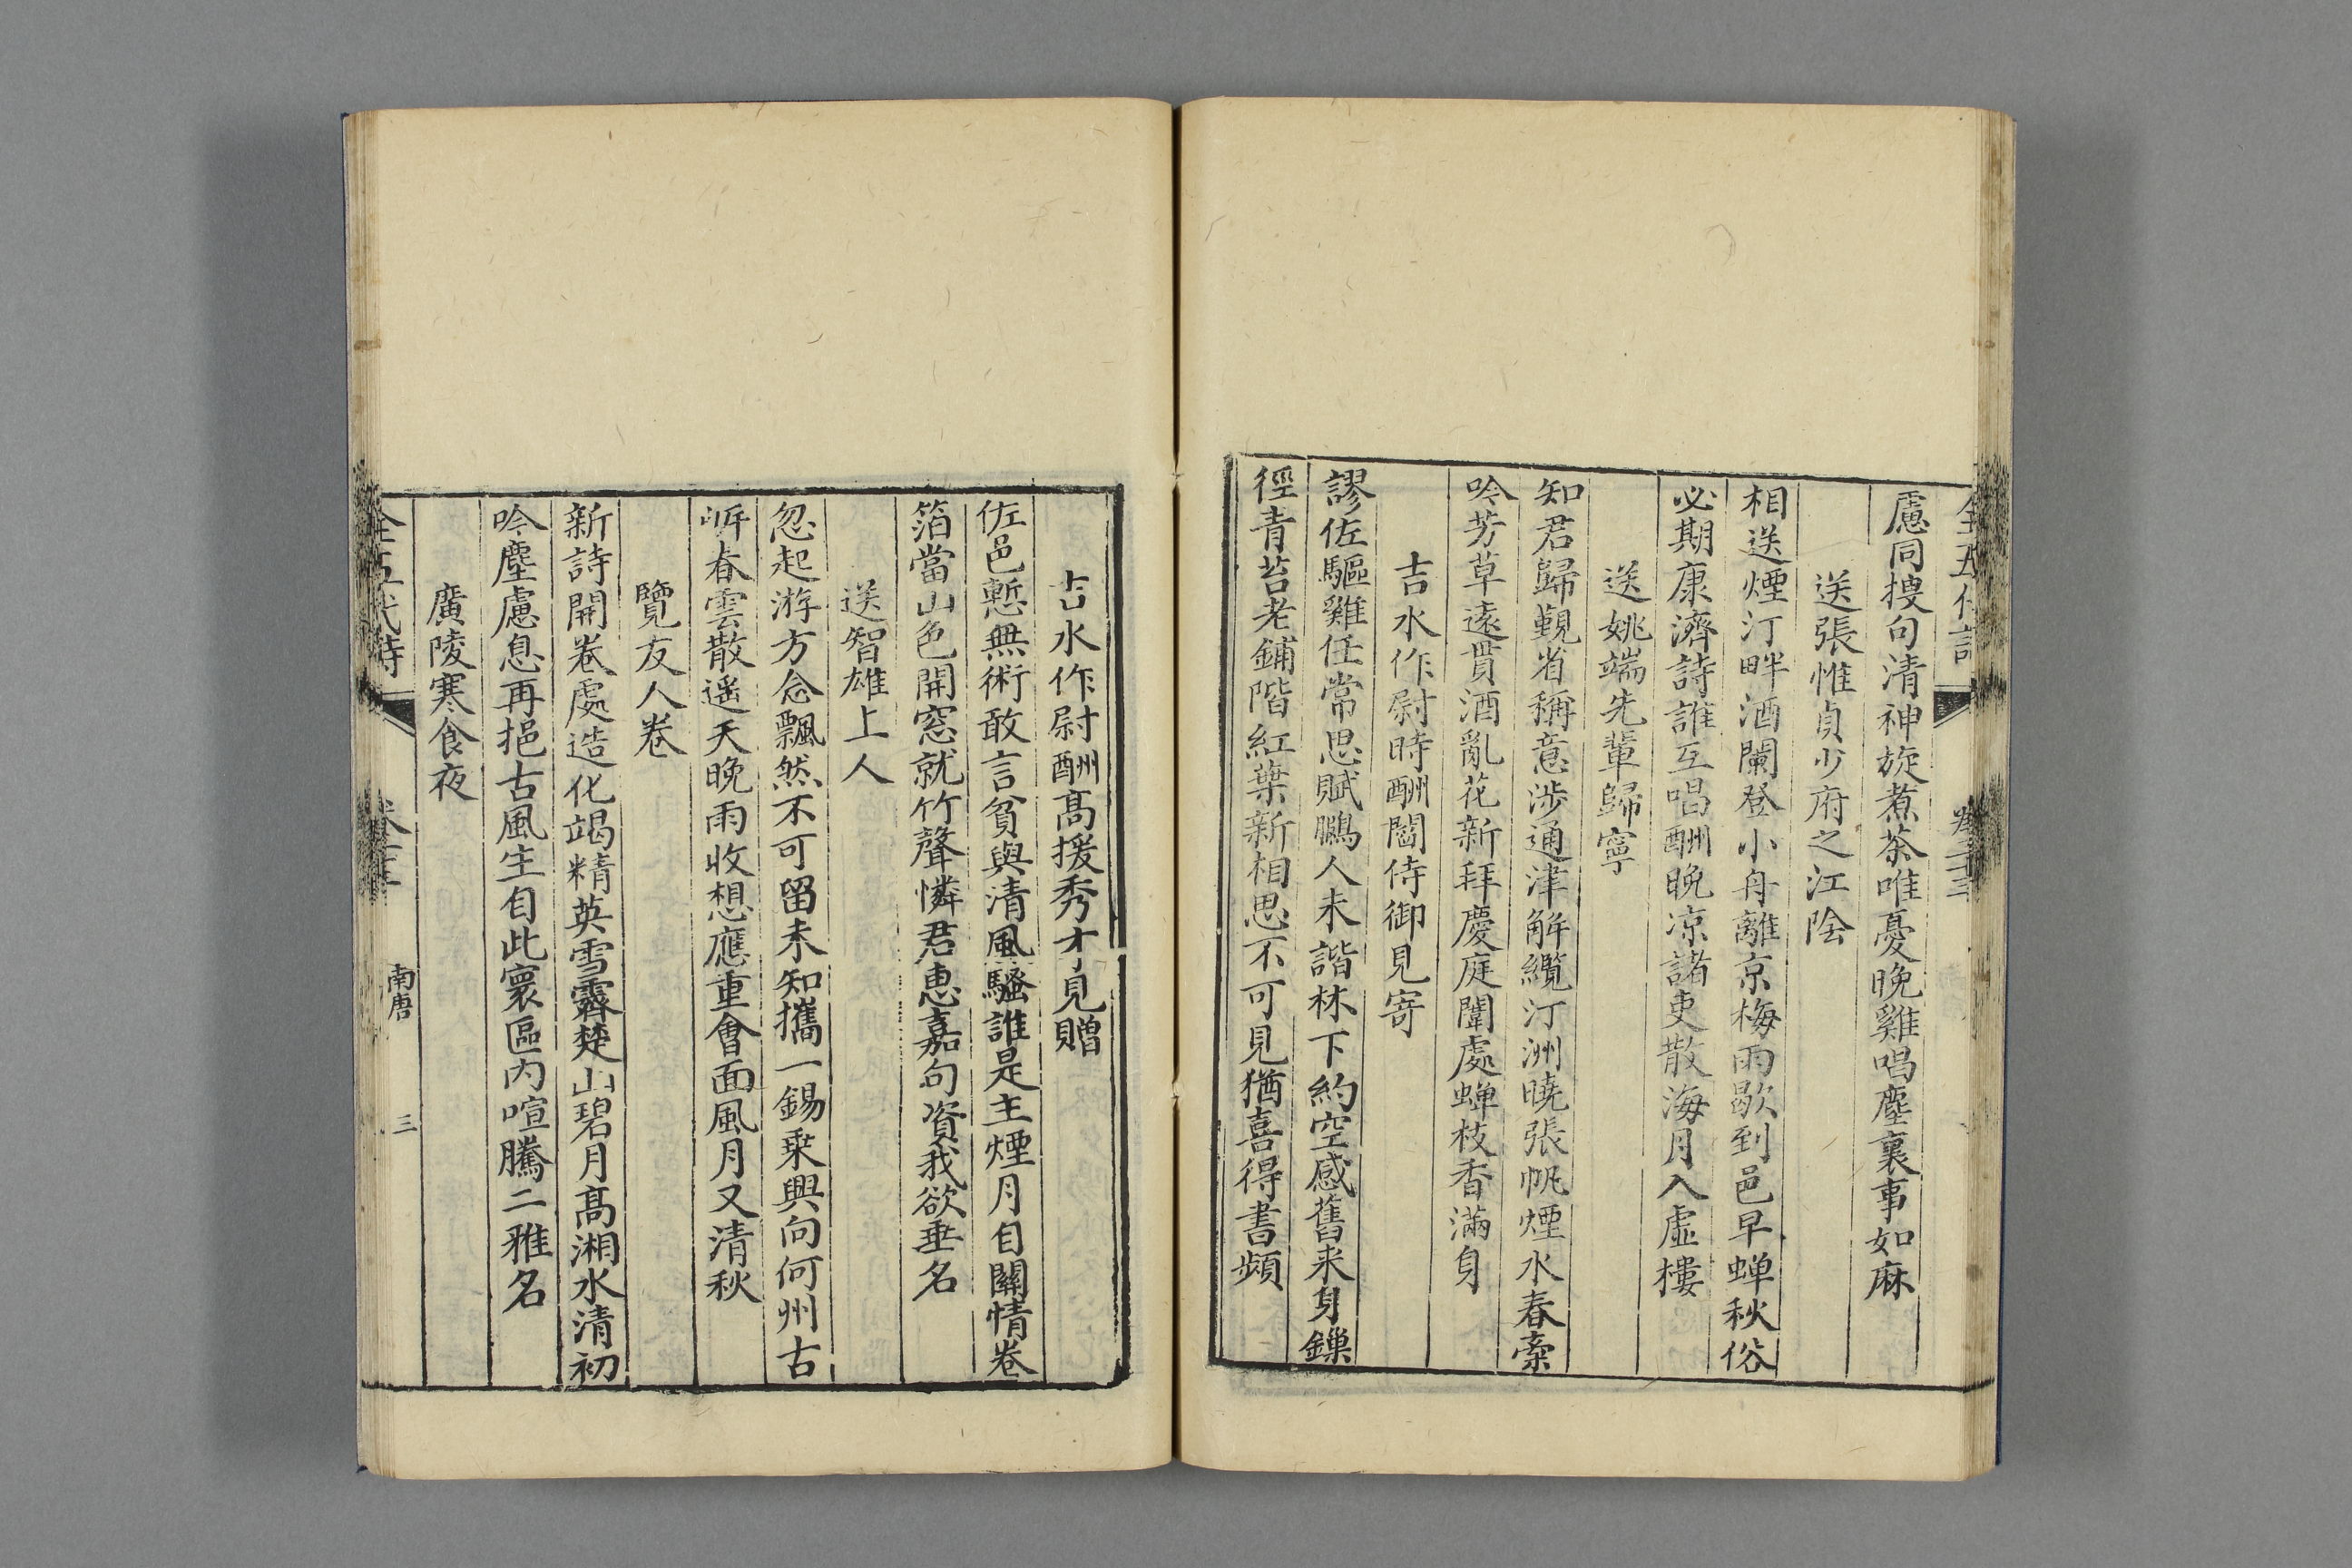 慮同搜句清神旋煮茶唯憂晚雞唱塵裏事如麻
送張惟貞少府之江陰
相送煙汀畔酒闌登小舟離京梅雨歇到邑早蟬秋俗
必期康濟詩誰互唱酬晚凉諸吏散海月入虛樓
送姚端先輩歸寧
知君歸覲省稱意涉通津解纜汀洲曉張帆煙水春索
吟芳草遠貰酒亂花新拜慶庭闈處蟬枝香滿身
吉水作尉時酬閣侍御見寄
謬佐驅雞任常思賦鵩人未諧林下約空感舊来身鏁
徑青苔老鋪階紅葉新相思不可見猶喜得書頻
吉水作尉酬髙援秀才見贈
佐邑慙無術敢言貧與清風騷誰是主煙月自關情卷
箔當山色開窓就竹聲憐君惠嘉句資我欲垂名
送智雄上人
忽起游方念飄然不可留未知攜一錫乗興向何州古
岓春雲散遥天晚雨收想應重會面風月又清秋
覽友人卷
新詩開卷處造化竭精英雪霽楚山碧月髙湘水清初
吟塵慮息再挹古風生自此寰區内喧騰二雅名
廣陵寒食夜
全五代詩
南唐
三